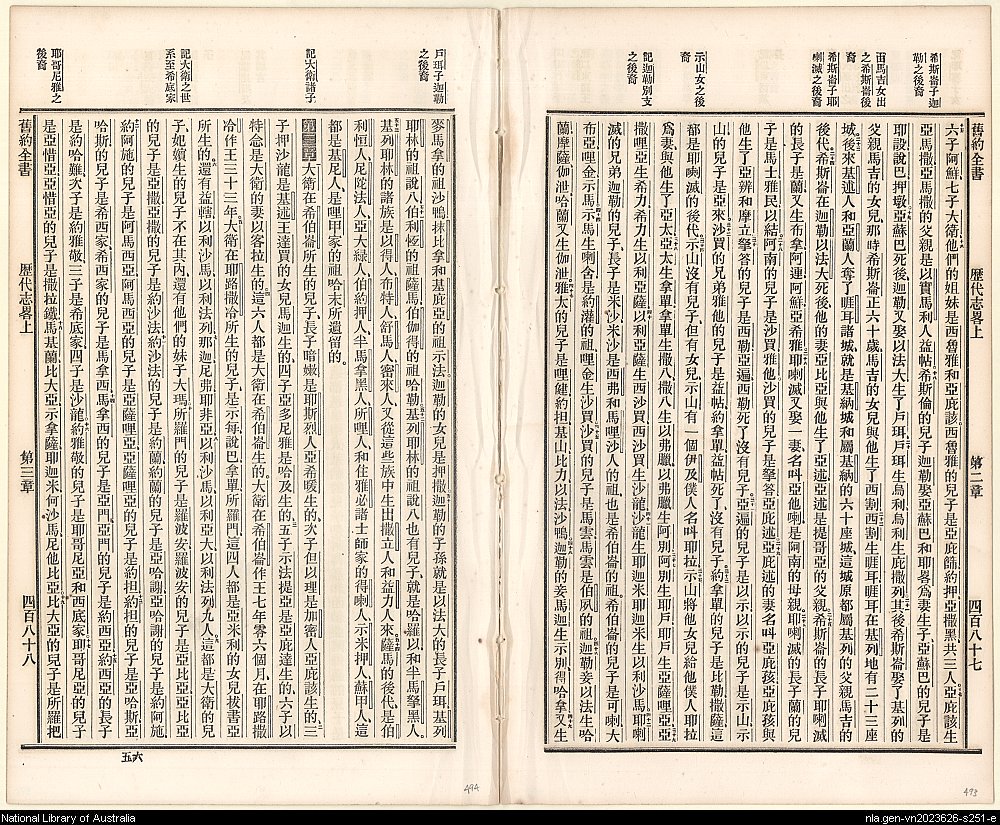 希斯崙子迦
勒之後裔
瑪吉女出
之希斯崙後
裔
希斯崙子耶
喇滅之後裔
示山女之後
裔
記迦勒別支
之後裔
舊約全書
歷代志畧上
第二章
四百八十七
六子阿鮮七子大衛他們的姐妹是西魯雅和亞庇該西魯雅的兒子是亞庇篩約押亞撒黑共三人亞庇該生
亞馬撒亞馬撒的父親是以實馬利人益帖希斯倫的兒子迦勒娶亞蘇巴和耶畧為妻生子亞蘇巴的兒子是
耶設說巴押墩亞蘇巴死後迦勒又娶以法大生了戶珥戶珥生烏利烏利生庇撒列其後希斯崙娶了基列的
父親馬吉的女兒那時希斯崙正六十歲馬吉的女兒與他生了西割西割生睚耳睚耳在基列地有二十三座
城後來基述人和亞蘭人奪了睚耳諸城就是基納城和屬基納的六十座城這城原都屬基列的父親馬吉的
後代希斯崙在迦勒以法大死後他的妻亞比亞與他生了亞述亞述是提哥亞的父親希斯崙的長子耶喇滅
的長子是蘭又生布拿阿連阿鮮亞希雅耶喇滅又娶一妻名叫亞他喇是阿南的母親耶喇滅的長子蘭的兒
子是馬士雅民以結阿南的兒子是沙買雅他沙買的兒子是拏答亞庇述亞庇述的妻名叫亞庇孩亞庇孩與
他生了亞辨和摩立拏答的兒子是西勒亞遍西勒死了沒有兒子亞遍的兒子是以示以示的兒子是示山示
山的兒子是亞來沙買的兄弟雅他的兒子是益帖約拿單益帖死了沒有兒子約拿單的兒子是比勒撒薩這
都是耶喇滅的後代示山沒有兒子但有女兒示山有一個伊及僕人名叫耶拉示山將他女兒給他僕人耶拉
為妻與他生了亞太亞太生拿單拿單生撒八撒八生以弗臘以弗臘生阿別阿別生耶戶耶戶生亞薩哩亞亞
撒哩亞生希力希力生以利亞薩以利亞薩生西沙買西沙買生沙龍沙龍生耶迦米耶迦米生以利沙馬耶喇
滅的兄弟迦勒的兒子長子是米沙米沙是西弗和馬哩沙人的祖也是希伯崙的祖希伯崙的兒子是可喇大
布亞哩金示馬示馬生喇含是約灌的祖哩金生沙買沙買的兒子是馬雲馬雲是伯夙的祖迦勒妾以法生哈
蘭摩薩伽泄哈蘭又生伽泄雅太的兒子是哩健約担基山比力以法沙鴨迦勒的妾馬迦生示別得哈拿又生
戶珥子迦勒
之後裔
記大衛諸子
記大衛之世
系至希底家
耶哥尼雅之
後裔
麥馬拿的祖沙鴨抹比拿和基庇亞的祖示法迦勒的女兒是押撒迦勒的子孫就是以法大的長子戶珥基列
耶林的祖說八伯利恆的祖薩馬伯伽得的祖哈勒基列耶林的祖說八也有兒子就是哈羅以和半馬拏黑人
基列耶林的諸族是以得人布特人舒馬人密來人又從這些族中生出撒立人和益力人來薩馬的後代是伯
利恒人尼陀法人亞大綠人伯約押人半馬拿黑人所哩人和住雅必諸士師家的得喇人示米押人蘇甲人這
都是基尼人是哩甲家的祖哈末所遺留的
第三章大衛在希伯崙所生的兒子長子暗嫩是耶斯烈人亞希暖生的次子但以理是加密人亞庇該生的三
子押沙龍是基述王達買的女兒馬迦生的四子亞多尼雅是哈及生的五子示法提亞是亞庇達生的六子以
特念是大衛的妻以客拉生的這六人都是大衛在希伯崙生的大衛在希伯崙作王七年零六個月在耶路撒
冷作王三十三年大衛在耶路撒冷所生的兒子是示每說巴拿單所羅門這四人都是亞米利的女兒拔書亞
所生的還有益轄以利沙馬以利法列那迦尼弗耶非亞以利沙馬以利亞大以利法列九人這都是大衛的兒
子妃嬪生的兒子不在其內還有他們的妹子大瑪所羅門的兒子是羅波安羅波安的兒子是亞比亞亞比亞
的兒子是亞撒亞撒的兒子是約沙法約沙法的兒子是約蘭約蘭的兒子是亞哈謝亞哈謝的兒子是約阿施
約阿施的兒子是阿馬西亞阿馬西亞的兒子是亞薩哩亞亞薩哩亞的兒子是約担約担的兒子是亞哈斯亞
哈斯的兒子是希西家希西家的兒子是馬拿西馬拿西的兒子是亞們亞們的兒子是約西亞約西亞的長子
是約哈難次子是約雅敬三子是希底家四子是沙龍約雅敬的兒子是耶哥尼亞和西底家耶哥尼亞的兒子
是亞惜亞亞惜亞的兒子是撒拉鐵馬基蘭比大亞示拿薩耶迦米何沙馬尼他比亞比大亞的兒子是所羅把
舊約全書
歷代志畧上
第三章
四百八十八
五六
494
493
National Library of Australia
nla.gen-vn2023626-s251-e